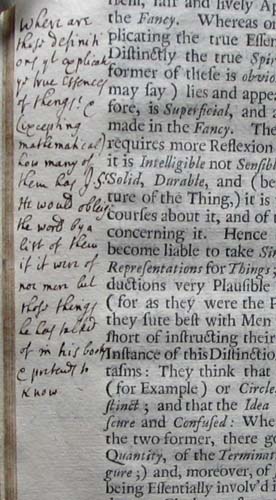 Where are
those definiti
ons yt explicate
ye true Essences
of things? &
(excepting
mathematical)
how many of
them has J.S.
He would oblige
the word by a
list of them
if it were of
not more but
those things
he has talked
of in his book
& pretends to
know
them, fair and lively Ap
the Fancy. Whereas o
plicating the true Essen
Distinctly the true Spir
former of these is obvio
may say) lies and appe
fore, is Superficial, and a
made in the Fancy. The
requires more Reflexion
it is Intelligible not Sensib
Solid, Durable, and (be
ture of the Thing,) it is
courses about it, and of
concerning it. Hence
become liable to take Sim
Representations for Things;
ductions very Plausible
(for as they were the F
they sute best with Men
short of instructing their
Instance of this Distinctio
tasms: They think that
(for Example) or Circle
stinct; and that the Idea
scure and Confused: Whe
the two former, there go
Quantity, of the Terminat
gure;) and, moreover, of
being Essentially involv'd i